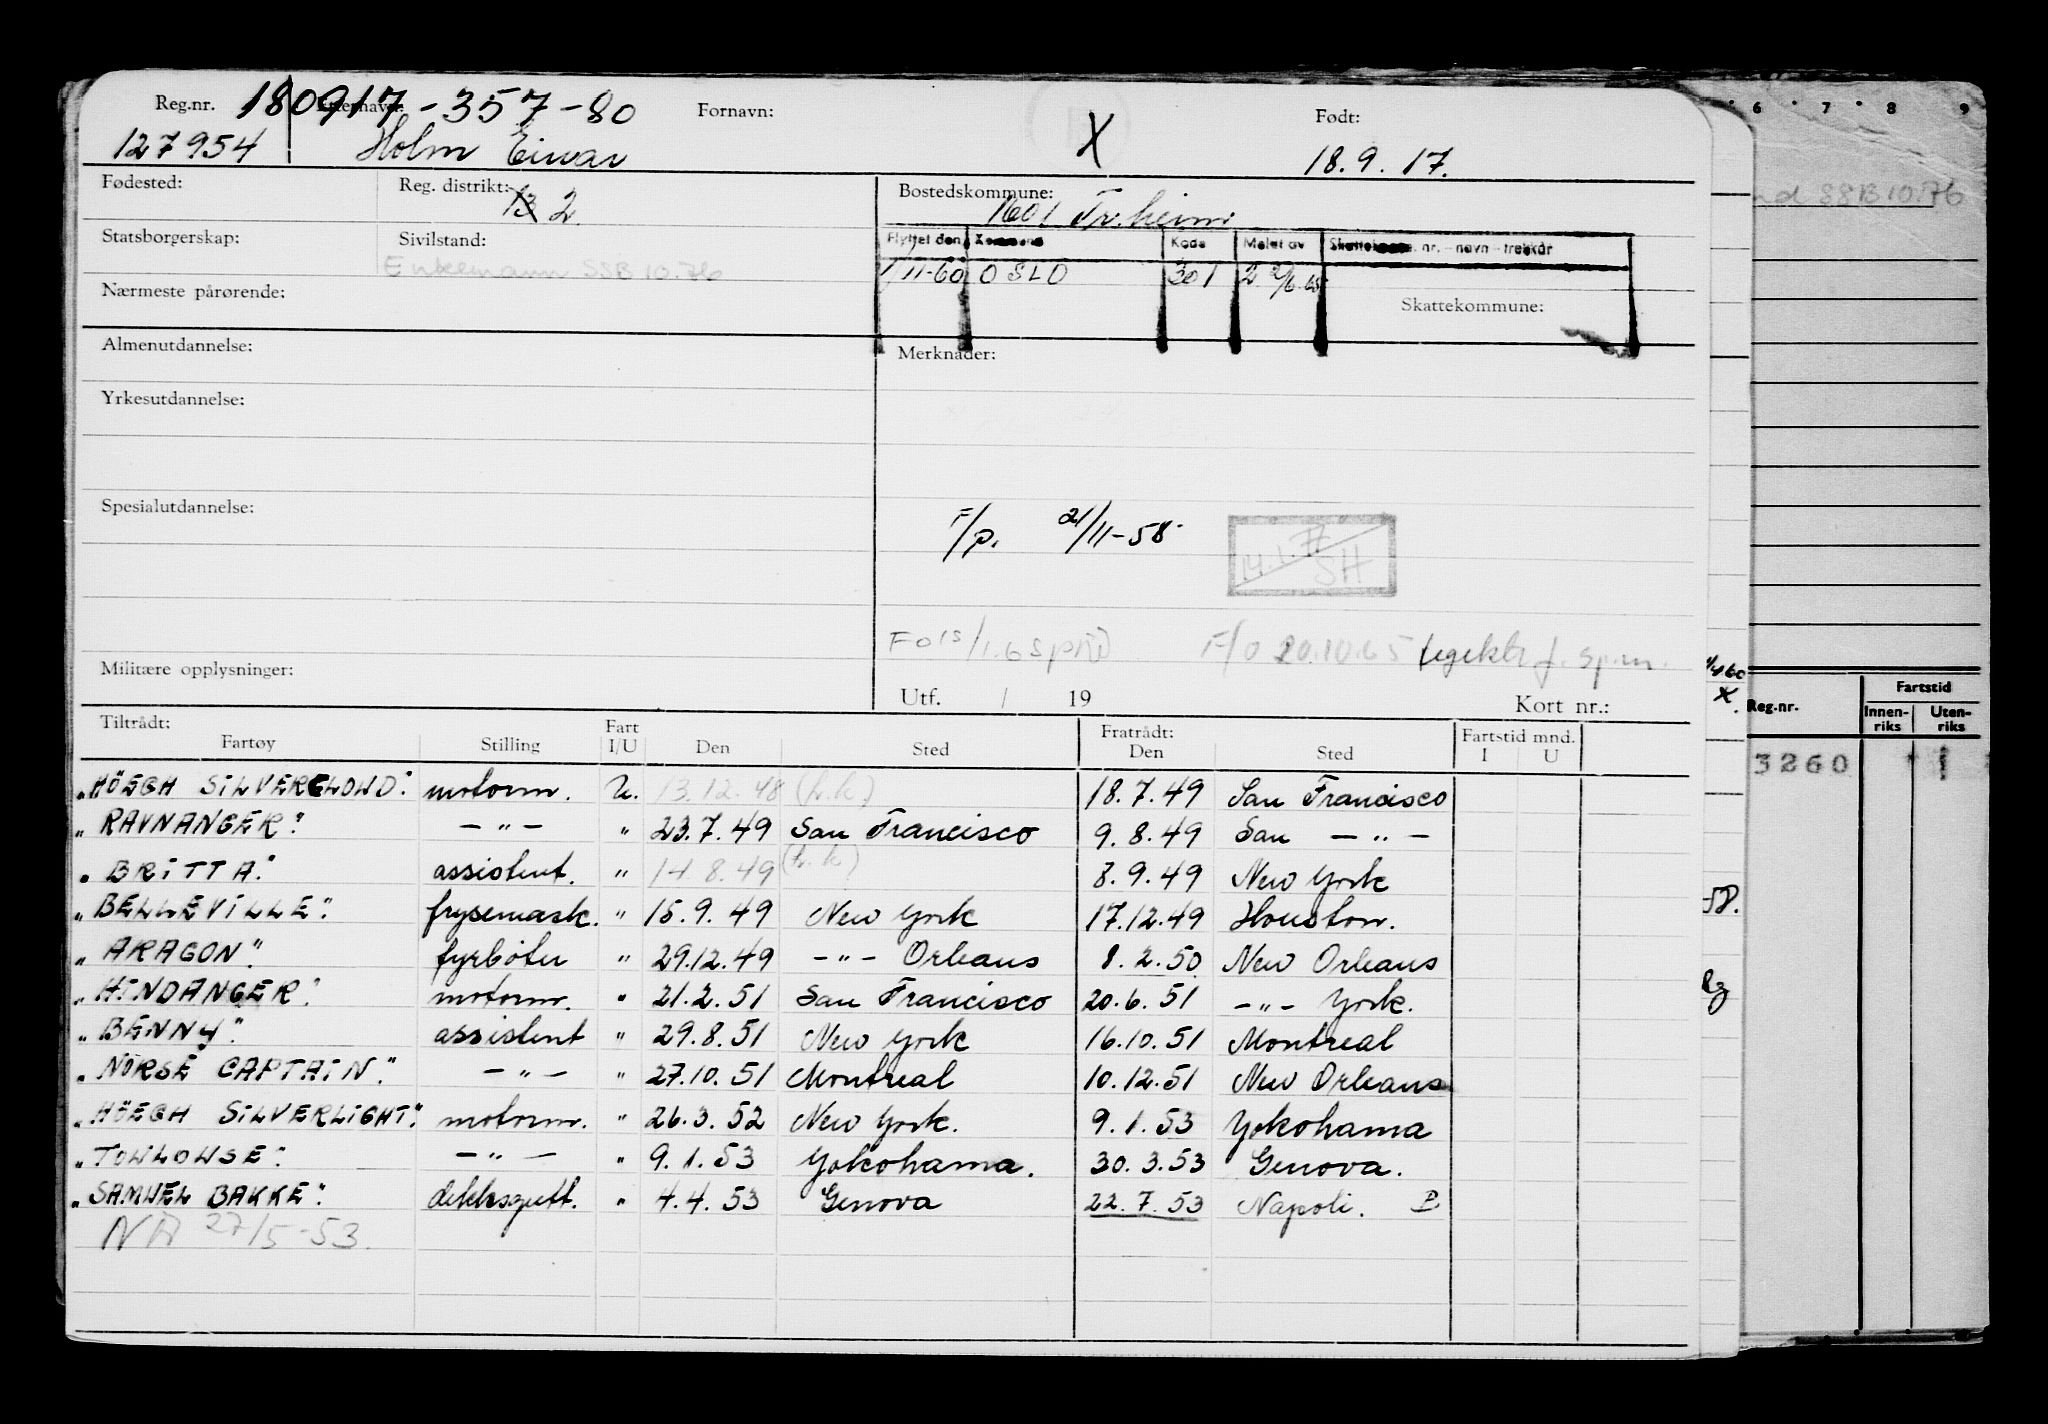 Reg.nr. 180917-357-80 Fornavn: X Født:
127954 Holm Einar 18.9.17.
Fødested: Reg. distrikt: 13 2 Bostedskommune: 1601 Tr.heim
Flyttet den Kommune Kode Meldt av Skattekomm. nr. - navn - trekkår
Statsborgerskap: Sivilstand: 1/11-60 OSLO 301 2 2/6.65
Enkemann SSB 10.76
Nærmeste pårørende: Skattekommune:
Almenutdannelse: Merknader:
Yrkesutdannelse:
Spesialutdannelse: F/p. 21/11-58
14.1.77 SH
F/o 20.10.65 legektr f. sp.m.
Militære opplysninger:
Utf. / 19 Kort nr.:
Tiltrådt: Fart Fratrådt: Fartstid mnd.
Fartøy Stilling I/U Den Sted Den Sted I U
"HÖEGH SILVERCLOUD" motorm. U. 13.12.48 (h.k) 18.7.49 San Francisco
"RAVNANGER" - " - " 23.7.49 San Francisco 9.8.49 San - " -
"BRITTA" assistent. " 14.8.49 (h.k) 8.9.49 New York
"BELLEVILLE" frysemask. " 15.9.49 New York 17.12.49 Houston.
"ARAGON" fyrbøter " 29.12.49 - " - Orleans 8.2.50 New Orleans
"HINDANGER" motorm. " 21.2.51 San Francisco 20.6.51 - " - York.
"BENNY" assistent " 29.8.51 New York 16.10.51 Montreal
"NORSE CAPTAIN" - " - " 27.10.51 Montreal 10.12.51 New Orleans
"HÖEGH SILVERLIGHT" motorm. " 26.3.52 New York. 9.1.53 Yokohama
"TOULOUSE" - " - " 9.1.53 Yokohama. 30.3.53 Genova.
"SAMUEL BAKKE" dekksgutt. " 4.4.53 Genova 22.7.53 Napoli. P.
NA 27/5-53.
6 7 8 9
SSB 10.76
X
58.
Reg.nr. Fartstid
Innen-riks Uten-riks
3260 1